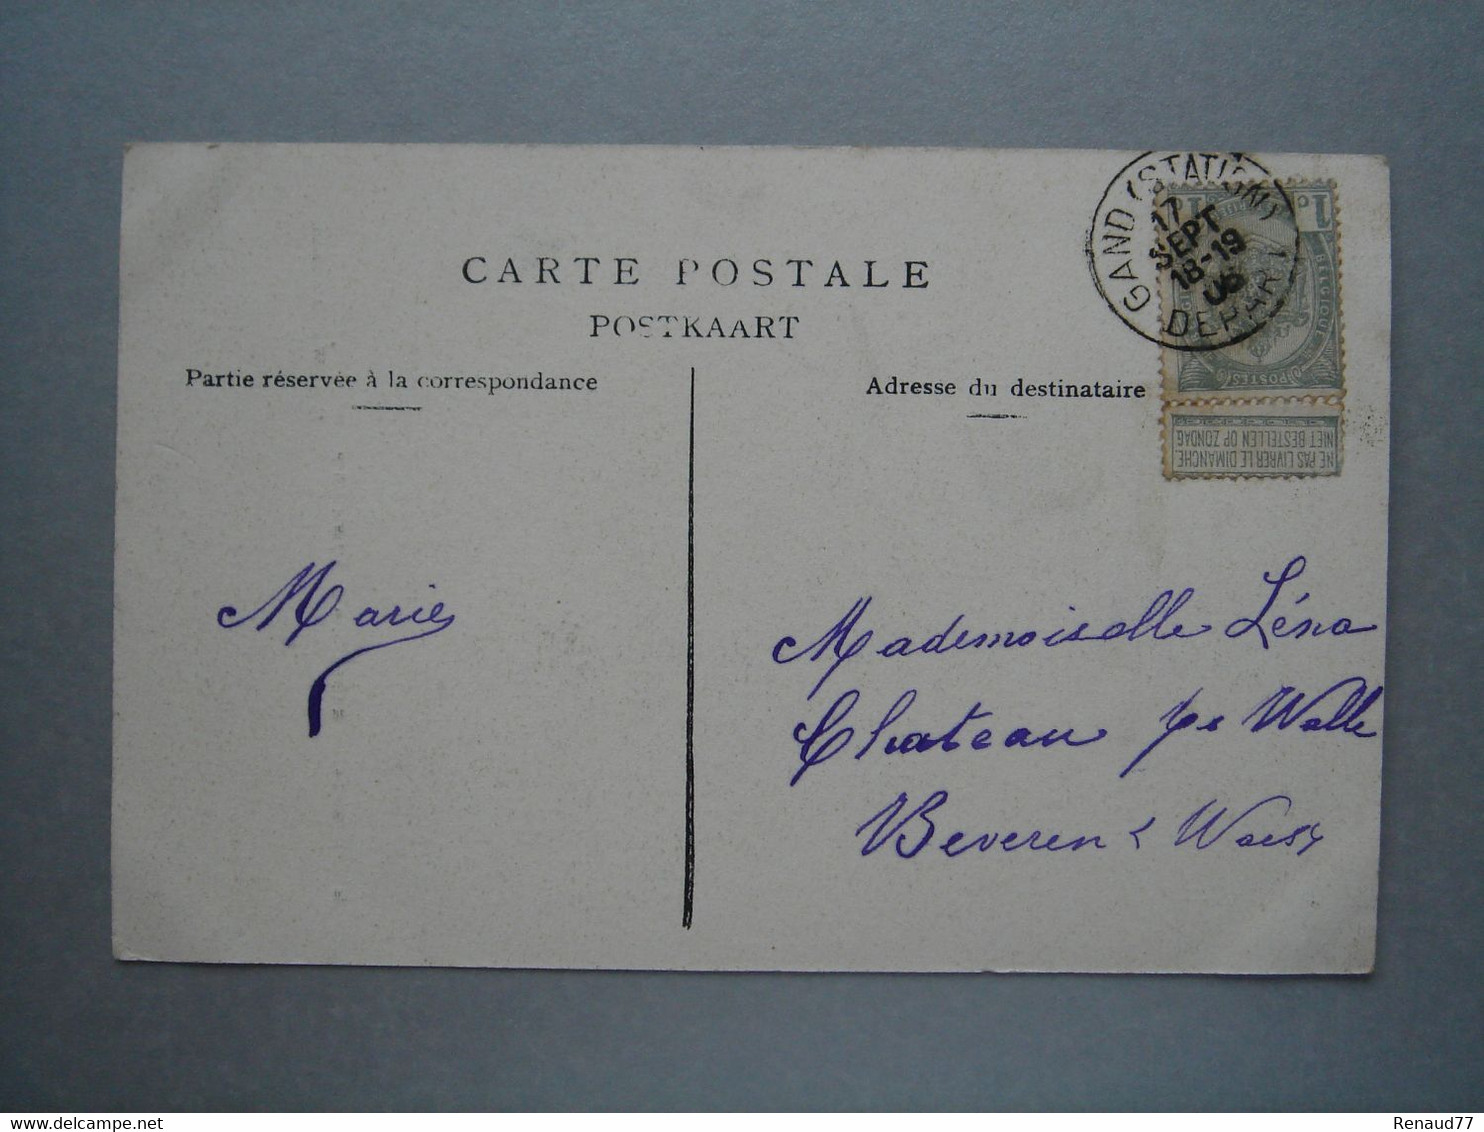 CARTE POSTALE
POSTKAART
Partie réservée à la correspondance
Adresse du destinataire
GAND (STATION)
17
SEPT
18-19
06
DEPART
1c 1c
BELGIQUE
POSTES
NE PAS LIVRER LE DIMANCHE
NIET BESTELLEN OP ZONDAG
Marie
Mademoiselle Léna
Chateau Walle
Beveren Waes
Renaud77